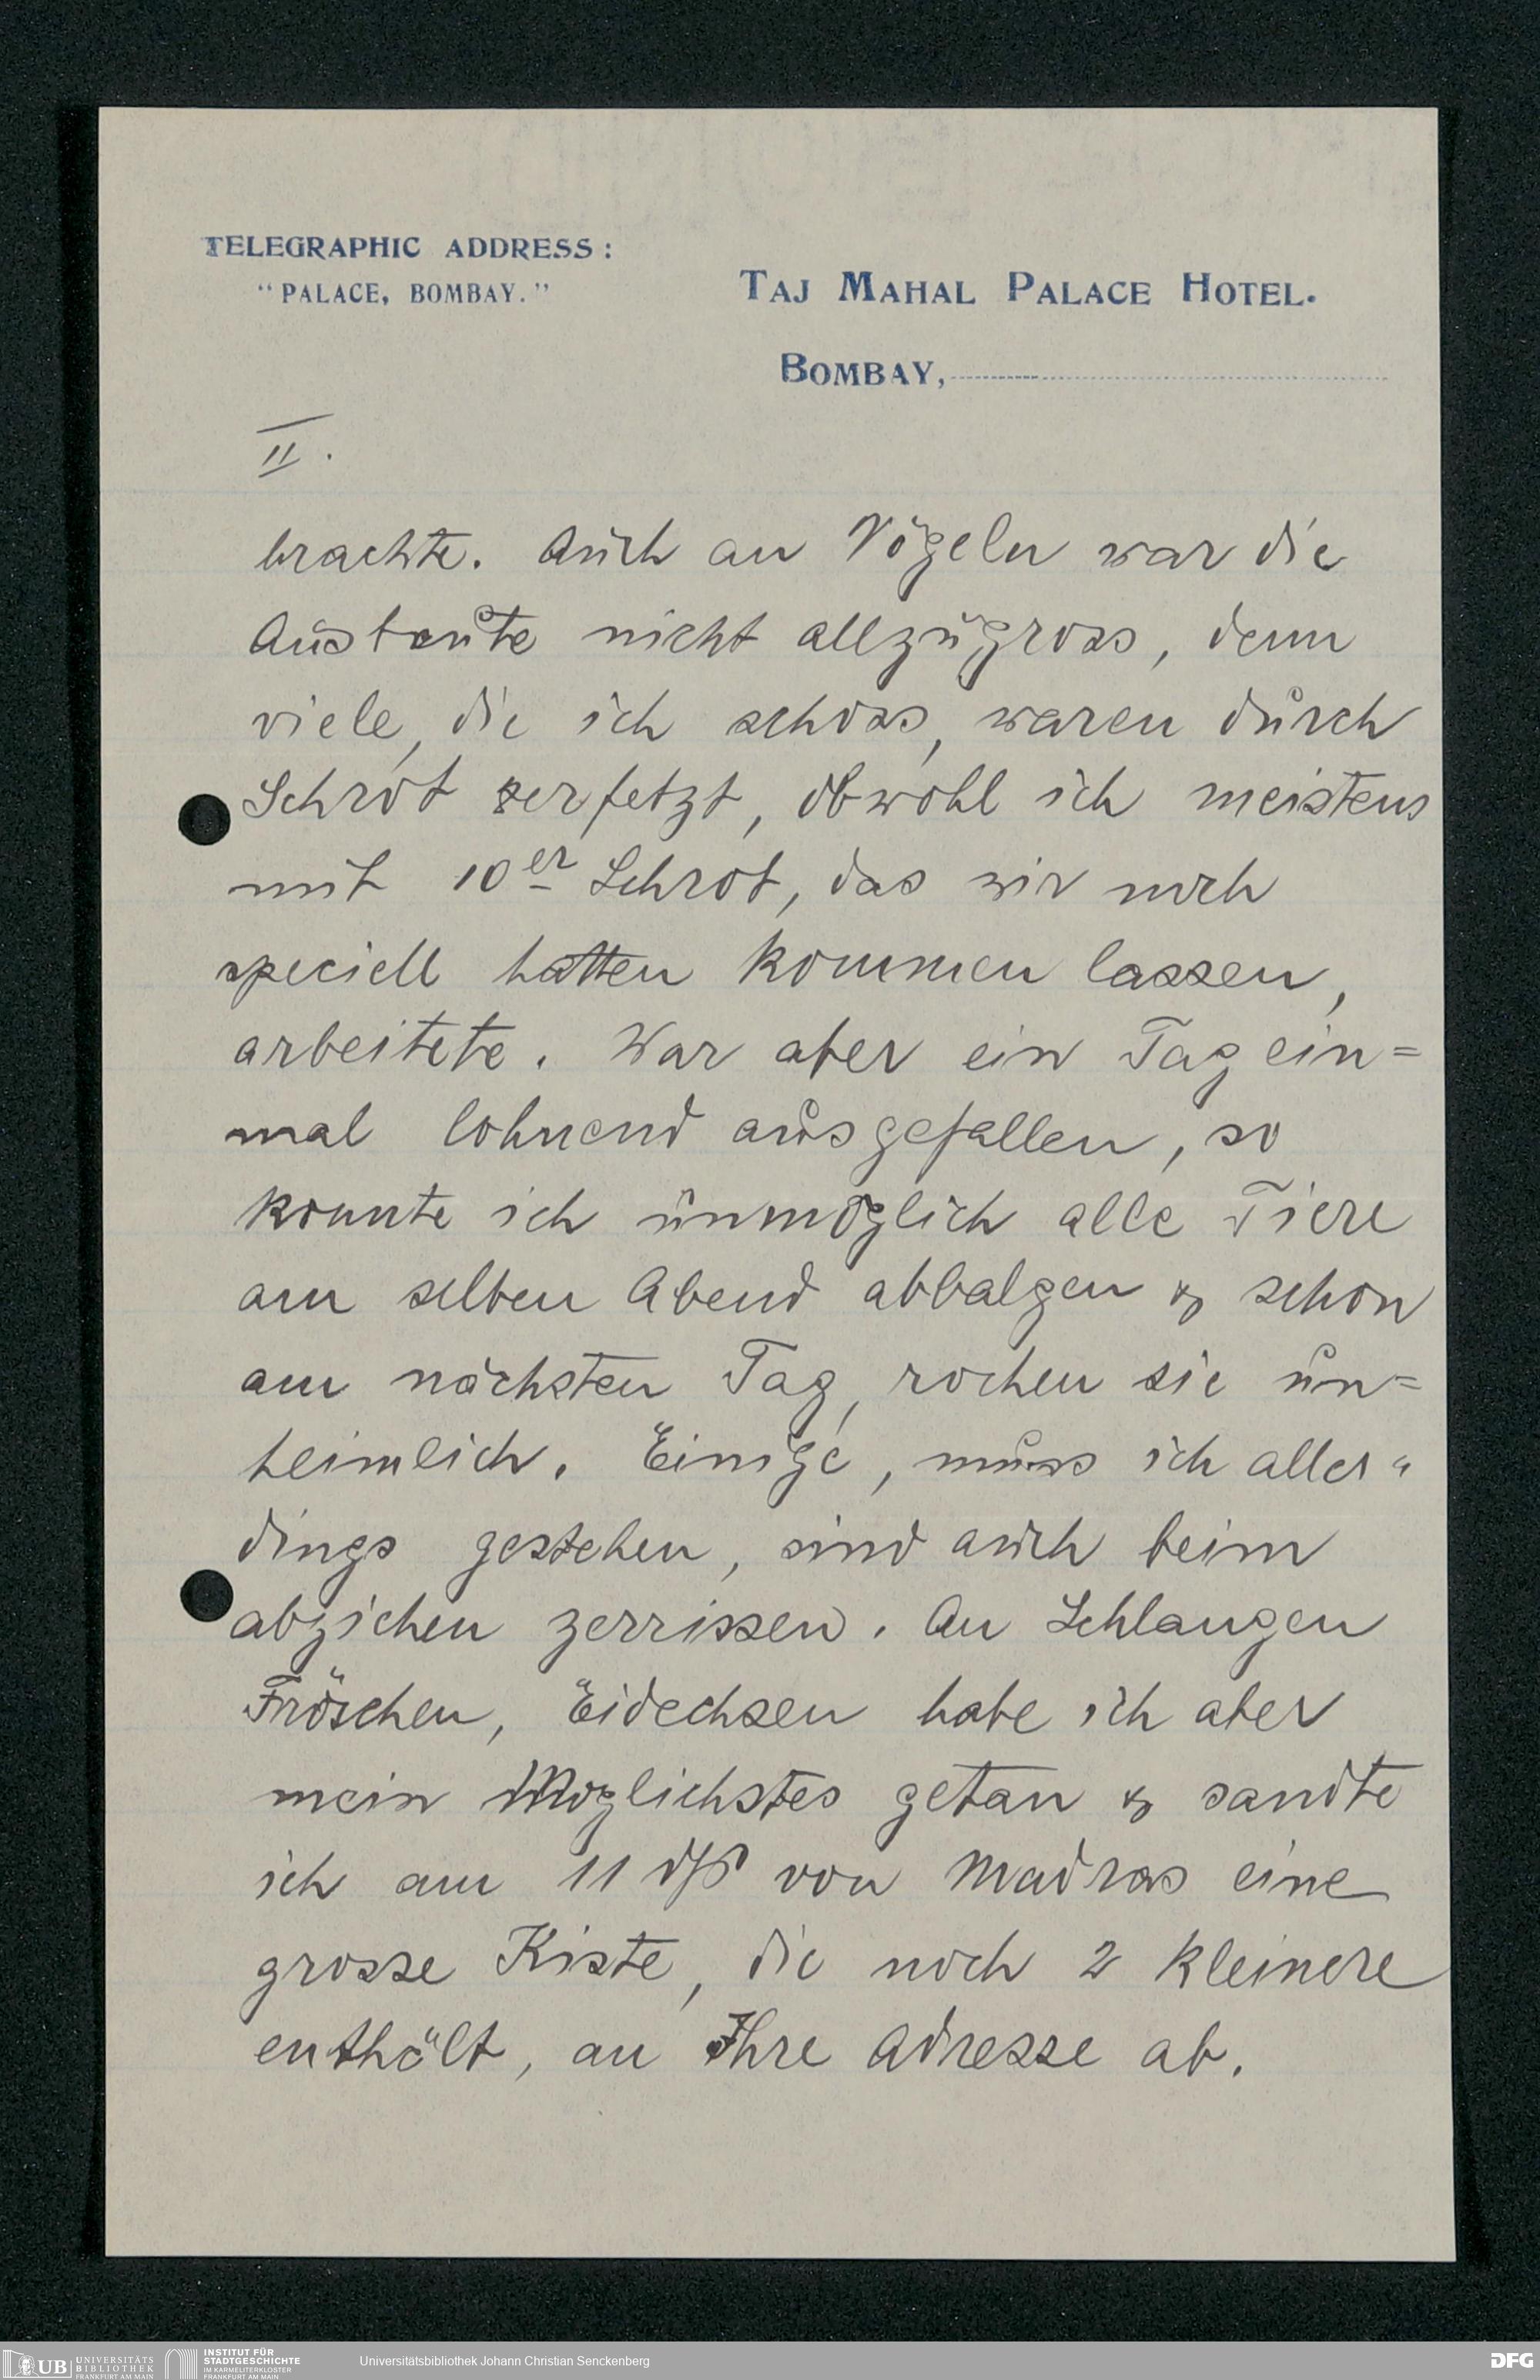 TELEGRAPHIC ADDRESS:
"PALACE, BOMBAY."
TAJ MAHAL PALACE HOTEL.
BOMBAY,
II.
brachte. Auch an Vögeln war die
Ausbeute nicht allzugross, denn
viele, die ich schoss, waren durch
Schrot zerfetzt, obwohl ich meistens
mit 10er Schrot, das wir noch
speciell hatten kommen lassen,
arbeitete. War aber ein Tag ein=
mal lohnend ausgefallen, so
konnte ich unmöglich alle Tiere
am selben Abend abbalgen & schon
am nächsten Tag, rochen sie un=
heimlich. Einige, muss ich aller"
dings gestehen, sind auch beim
abziehen zerrissen. An Schlangen
Fröschen, Eidechsen habe ich aber
mein Möglichstes getan & sandte
ich am 11 ds von Madras eine
grosse Kiste, die noch 2 kleinere
enthält, an Ihre Adresse ab.
UB UNIVERSITÄTS
BIBLIOTHEK
FRANKFURT AM MAIN
INSTITUT FÜR
STADTGESCHICHTE
IM KARMELITERKLOSTER
FRANKFURT AM MAIN
Universitätsbibliothek Johann Christian Senckenberg
DFG